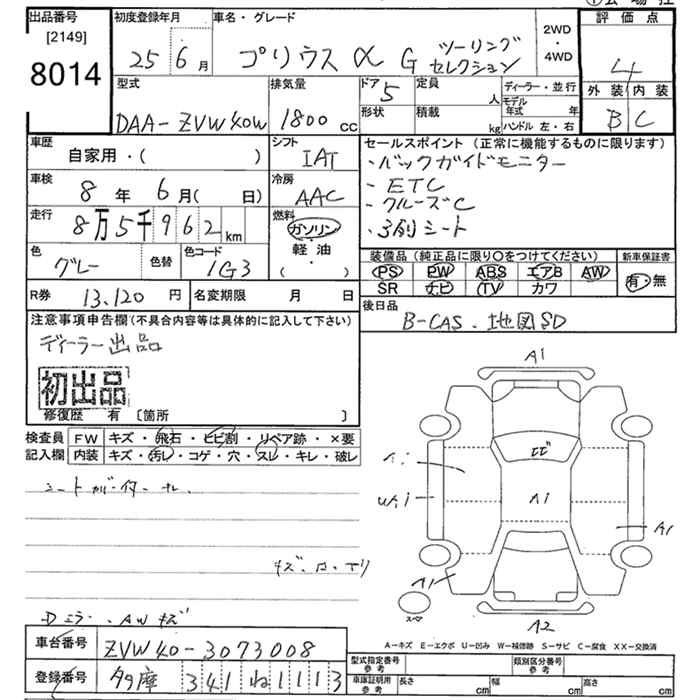 出品番号 [2149] 8014
初度登録年月 25 6月
車名・グレード プリウス α G ツーリングセレクション
2WD・4WD
評価点 4
外装 内装
B C
型式 DAA-ZVW40W
排気量 1800 cc
ドア 5
形状
定員 人
積載 kg
ディーラー・並行
モデル年式 年
ハンドル 左・右
車歴 自家用・( )
シフト IAT
セールスポイント (正常に機能するものに限ります)
・バックガイドモニター
・ETC
・クルーズC
・3列シート
車検 8年 6月( 日)
冷房 AAC
走行 8万5千962km
燃料 ガソリン・軽油・( )
色 グレー 色替
色コード 1G3
装備品 (純正品に限り○をつけてください)
PS PW ABS エアB AW
SR ナビ TV カワ
新車保証書 有・無
R券 13,120円
名変期限 月 日
後日品 B-CAS、地図SD
注意事項申告欄 (不具合内容等は具体的に記入して下さい)
ディーラー出品
初出品
修復歴 有 〔箇所 〕
検査員記入欄
FW キズ・飛石・ヒビ割・リペア跡・×要
内装 キズ・汚レ・コゲ・穴・スレ・キレ・破レ
A1
A1
A1
A1
A2
スペア
A-キズ E-エクボ U-凹み W-補修跡 S-サビ C-腐食 XX-交換済
車台番号 ZVW40-3073008
登録番号 多摩 341 ね 1113
型式指定番号 参考
類別区分番号 参考
車庫証明用 参考 長さ cm 幅 cm 高さ cm